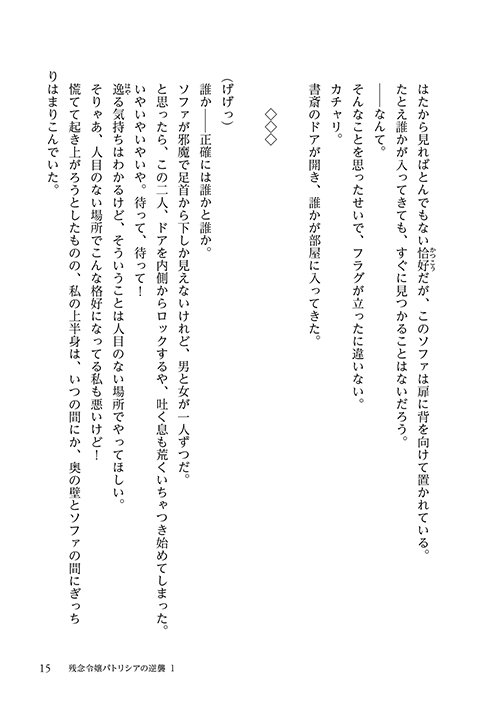 はたから見ればとんでもない恰好だが、このソファは扉に背を向けて置かれている。
たとえ誰かが入ってきても、すぐに見つかることはないだろう。
――なんて。
そんなことを思ったせいで、フラグが立ったに違いない。
カチャリ。
書斎のドアが開き、誰かが部屋に入ってきた。
◇◇◇
(げげっ)
誰か――正確には誰かと誰か。
ソファが邪魔で足首から下しか見えないけれど、男と女が一人ずつだ。
と思ったら、この二人、ドアを内側からロックするや、吐く息も荒くいちゃつき始めてしまった。
いやいやいやいや。待って、待って!
逸る気持ちはわかるけど、そういうことは人目のない場所でやってほしい。
そりゃあ、人目のない場所でこんな格好になってる私も悪いけど!
慌てて起き上がろうとしたものの、私の上半身は、いつの間にか、奥の壁とソファの間にぎっち
りはまりこんでいた。
15 残念令嬢パトリシアの逆襲 1